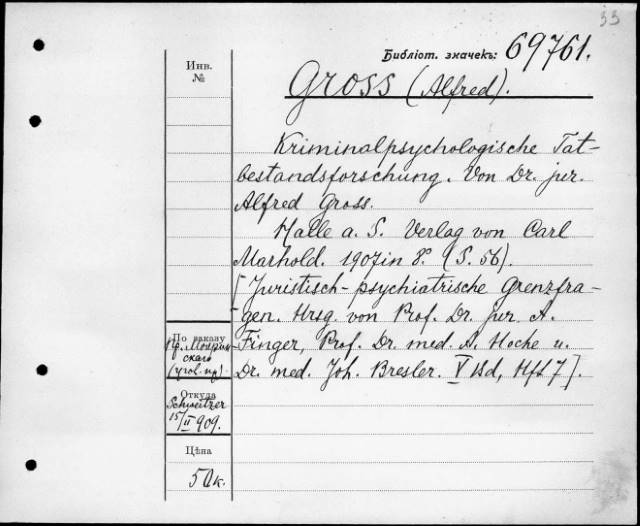 33
Библіот. значекъ: 69761.
Инв.
№
Gross (Alfred).
Kriminalpsychologische Tat-
bestandsforschung. Von Dr. jur.
Alfred Gross.
Halle a. S. Verlag von Carl
Marhold. 1907 in 8°. (S. 56).
[Juristisch-psychiatrische Grenzfra-
gen. Hrsg. von Prof. Dr. jur. A.
Finger, Prof. Dr. med. A. Hoche u.
Dr. med. Joh. Bresler. V Bd, Hft 7].
По заказу
скаго
(угол. пр.)
Откуда
Schweitzer
15/II 909.
Цѣна
50к.